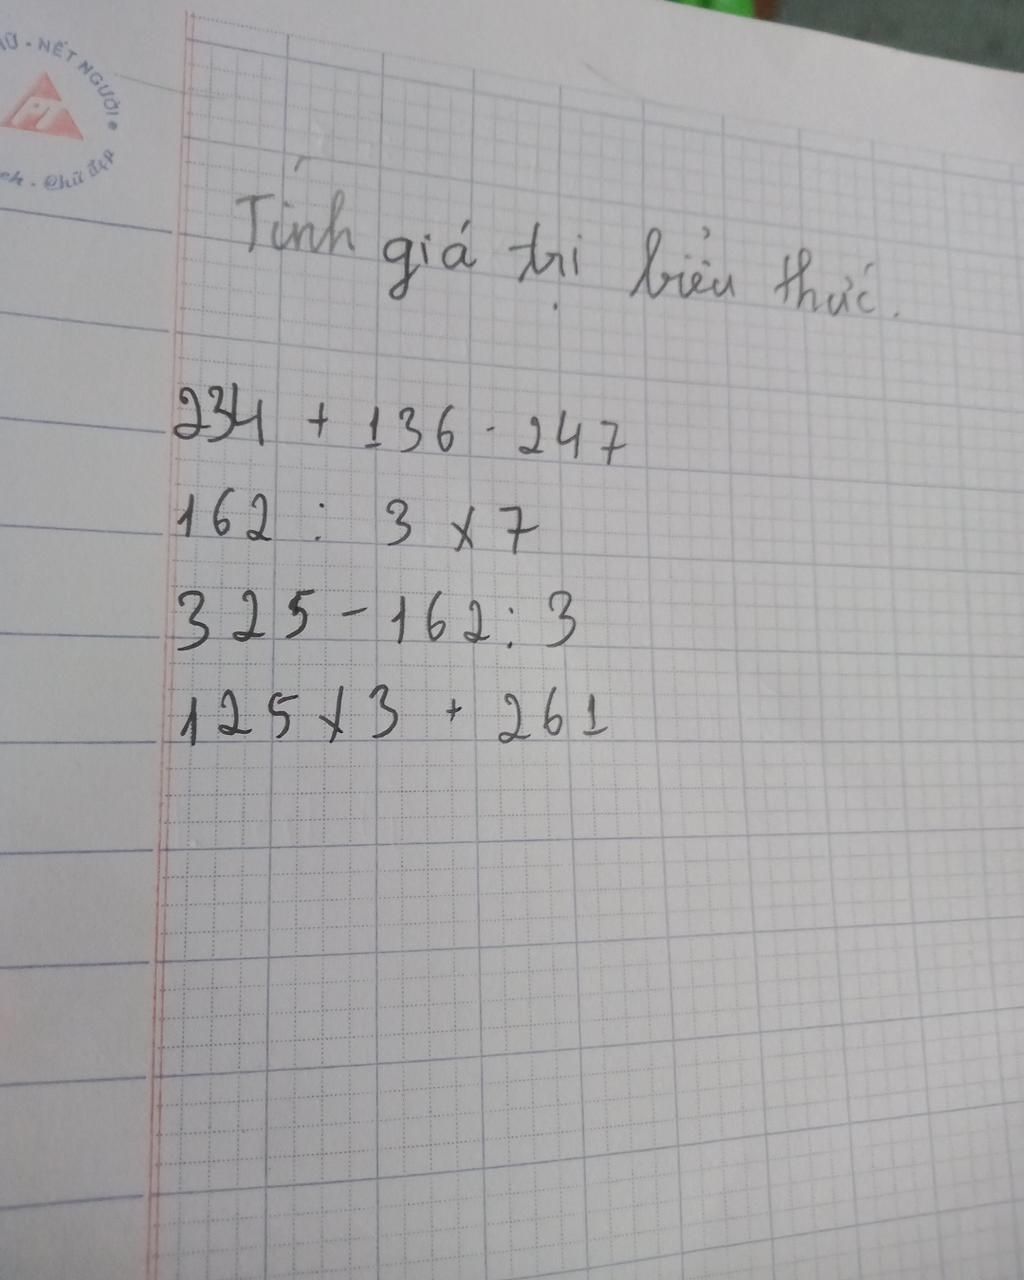 Ữ - NẾT NGƯỜI
ch - Chữ đẹp
Tính giá trị biểu thức.
234 + 136 - 247
162 : 3 x 7
325 - 162 : 3
125 x 3 + 261